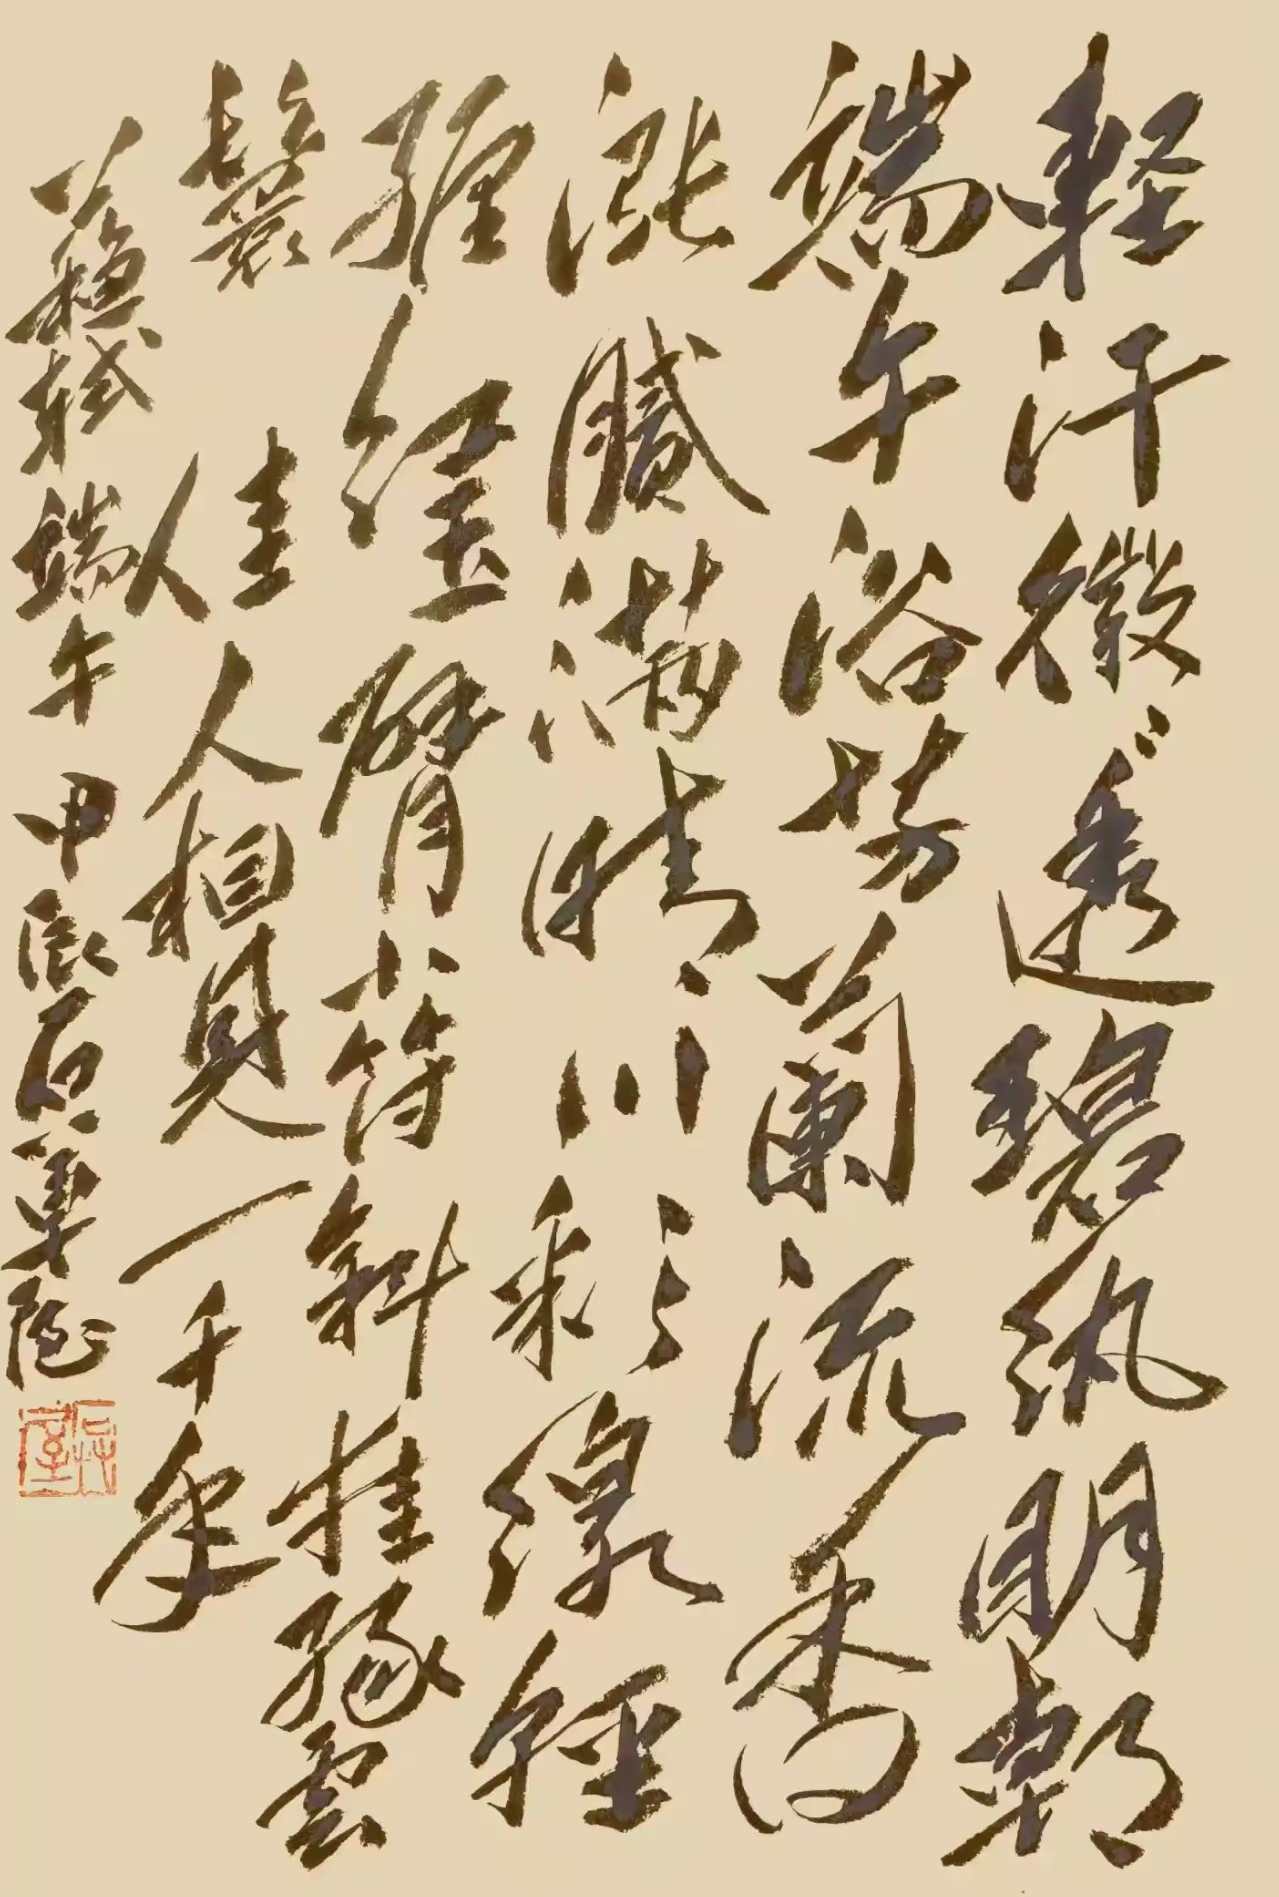 軽汗微々透碧紈明朝
端午浴芳蘭流香
漲膩滿晴川彩線輕
纏紅玉臂小符斜挂綠雲
鬟佳人相見一千年
蘇軾端午甲辰